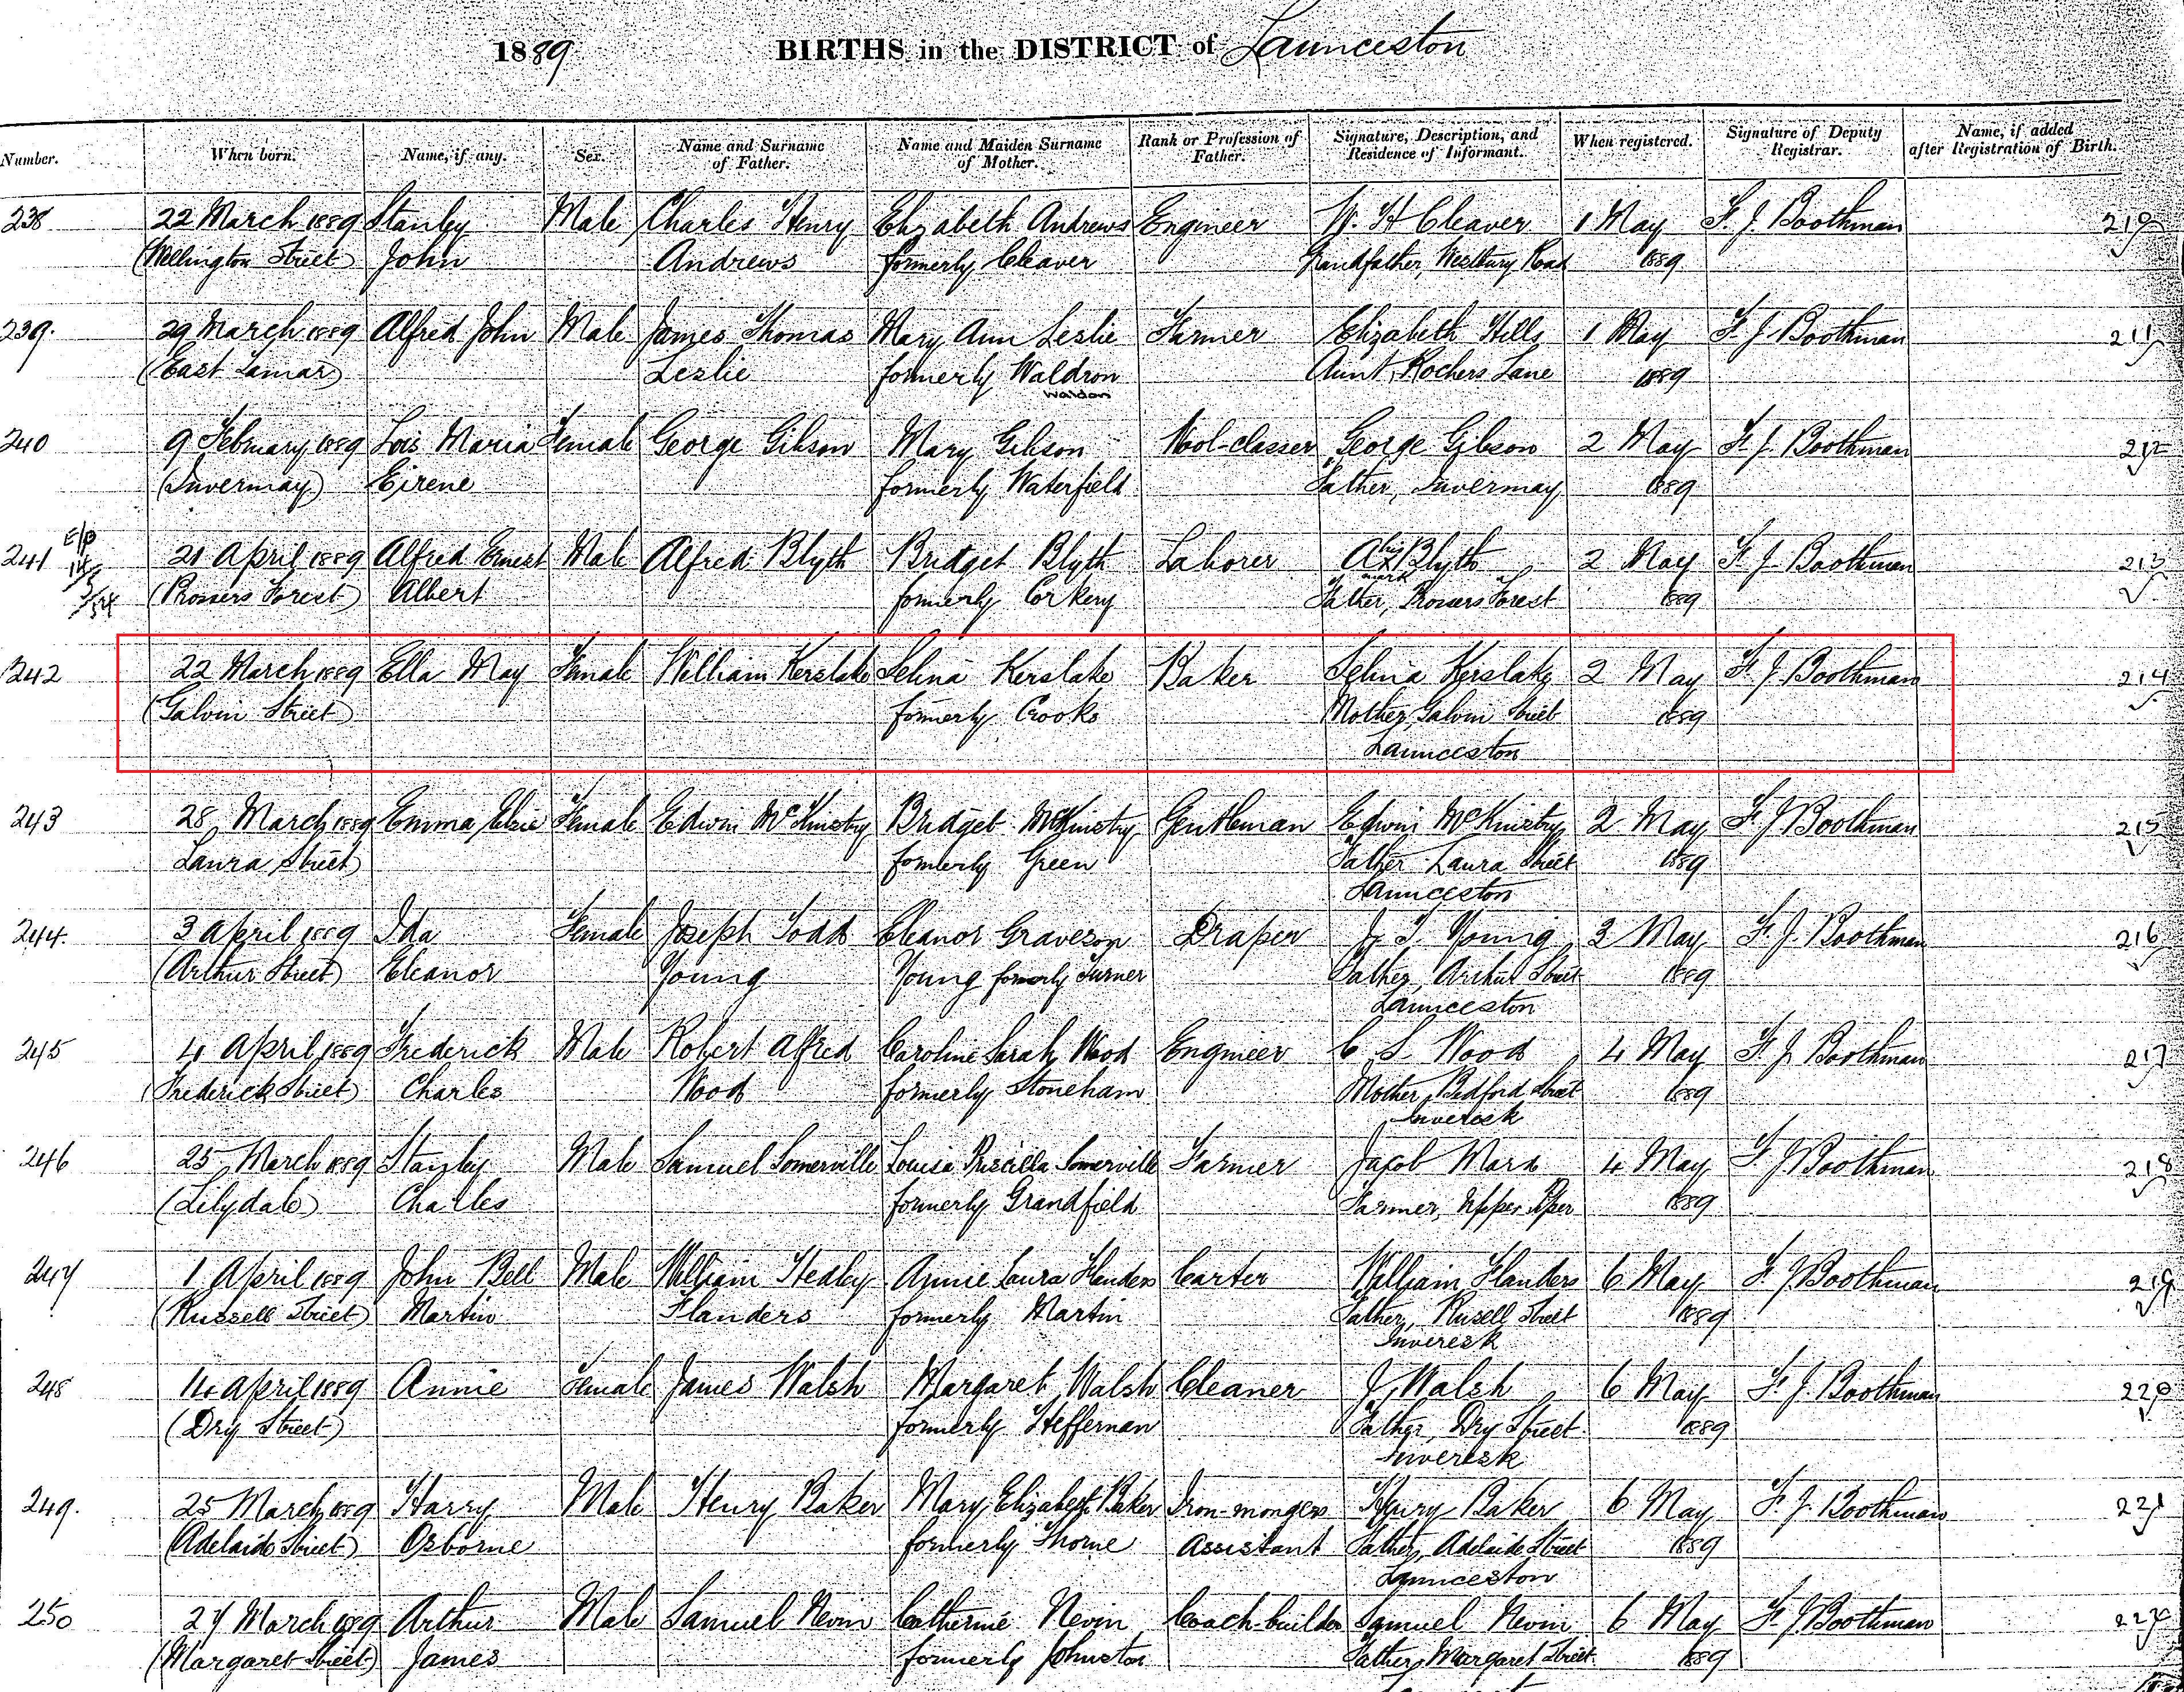 1889 BIRTHS in the DISTRICT of Launceston
Number. When born. Name, if any. Sex. Name and Surname of Father. Name and Maiden Surname of Mother. Rank or Profession of Father. Signature, Description, and Residence of Informant. When registered. Signature of Deputy Registrar. Name, if added after Registration of Birth.
238 22 March 1889 Stanley Male Charles Henry Elizabeth Andrews Engineer W. H Cleaver 1 May F. J. Boothman
(Wellington Street) John Andrews formerly Cleaver Grandfather, Westbury Road 1889
239. 29 March 1889 Alfred John Male James Thomas Mary Ann Leslie Farmer Elizabeth Hills 1 May F. J. Boothman 211
(East Tamar) Leslie formerly Waldron Aunt, Rochers Lane 1889
Waldon
240 9 February 1889 Lois Maria Female George Gibson Mary Gibson Wool-classer George Gibson 2 May F. J. Boothman 212
(Invermay) Eirene formerly Waterfield Father, Invermay 1889
241 21 April 1889 Alfred Ernest Male Alfred Blyth Bridget Blyth Laborer A his x mark Blyth 2 May F. J. Boothman 213
(Prossers Forest) Albert formerly Corkery Father, Prossers Forest 1889
242 22 March 1889 Ella May Female William Kerslake Selina Kerslake Baker Selina Kerslake 2 May F. J. Boothman 214
(Galvin Street) formerly Crooks Mother, Galvin Street 1889
Launceston
243 28 March 1889 Emma Elsie Female Edwin McKinstry Bridget McKinstry Gentleman Edwin McKinstry 2 May F. J. Boothman 215
Laura Street) formerly Green Father Laura Street 1889
Launceston
244. 3 April 1889 Ida Female Joseph Todd Eleanor Graveson Draper J. T. Young 3 May F. J. Boothman 216
(Arthur Street) Eleanor Young Young formerly Turner Father, Arthur Street 1889
Launceston
245 4 April 1889 Frederick Male Robert Alfred Caroline Sarah Wood Engineer C. S. Wood 4 May F. J. Boothman 217
(Frederick Street) Charles Wood formerly Stoneham Mother, Bedford Street 1889
Inveresk
246 25 March 1889 Stanley Male Samuel Somerville Louisa Priscilla Somerville Farmer Jacob Marx 4 May F. J. Boothman 218
(Lilydale) Charles formerly Grandfield Farmer, Upper Piper 1889
247 1 April 1889 John Bell Male William Healey Annie Laura Flanders Carter William Flanders 6 May F. J. Boothman 219
(Russell Street) Martin Flanders formerly Martin Father, Russell Street 1889
Inveresk
248 14 April 1889 Annie Female James Walsh Margaret Walsh Cleaner J. Walsh 6 May F. J. Boothman 220
(Dry Street) formerly Heffernan Father, Dry Street 1889
Inveresk
249. 25 March 1889 Harry Male Henry Baker Mary Elizabeth Baker Iron-mongers Henry Baker 6 May F. J. Boothman 221
(Adelaide Street) Osborne formerly Thorne Assistant Father, Adelaide Street 1889
Launceston
250 27 March 1889 Arthur Male Samuel Nevin Catherine Nevin Coach-builder Samuel Nevin 6 May F. J. Boothman 222
(Margaret Street) James formerly Johnston Father, Margaret Street 1889